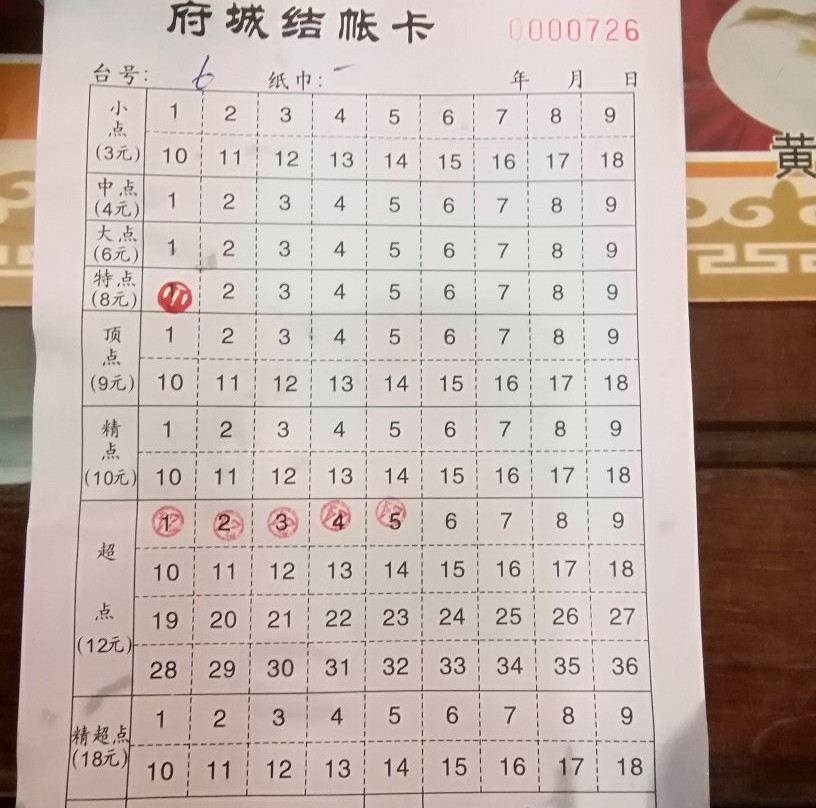 府城结帐卡 0000726
台号: 6 纸巾: 年 月 日
小点(3元) 1 2 3 4 5 6 7 8 9
10 11 12 13 14 15 16 17 18
中点(4元) 1 2 3 4 5 6 7 8 9
大点(6元) 1 2 3 4 5 6 7 8 9
特点(8元) 1 2 3 4 5 6 7 8 9
顶点(9元) 1 2 3 4 5 6 7 8 9
10 11 12 13 14 15 16 17 18
精点(10元) 1 2 3 4 5 6 7 8 9
10 11 12 13 14 15 16 17 18
超点(12元) 1 2 3 4 5 6 7 8 9
10 11 12 13 14 15 16 17 18
19 20 21 22 23 24 25 26 27
28 29 30 31 32 33 34 35 36
精超点(18元) 1 2 3 4 5 6 7 8 9
10 11 12 13 14 15 16 17 18
黄